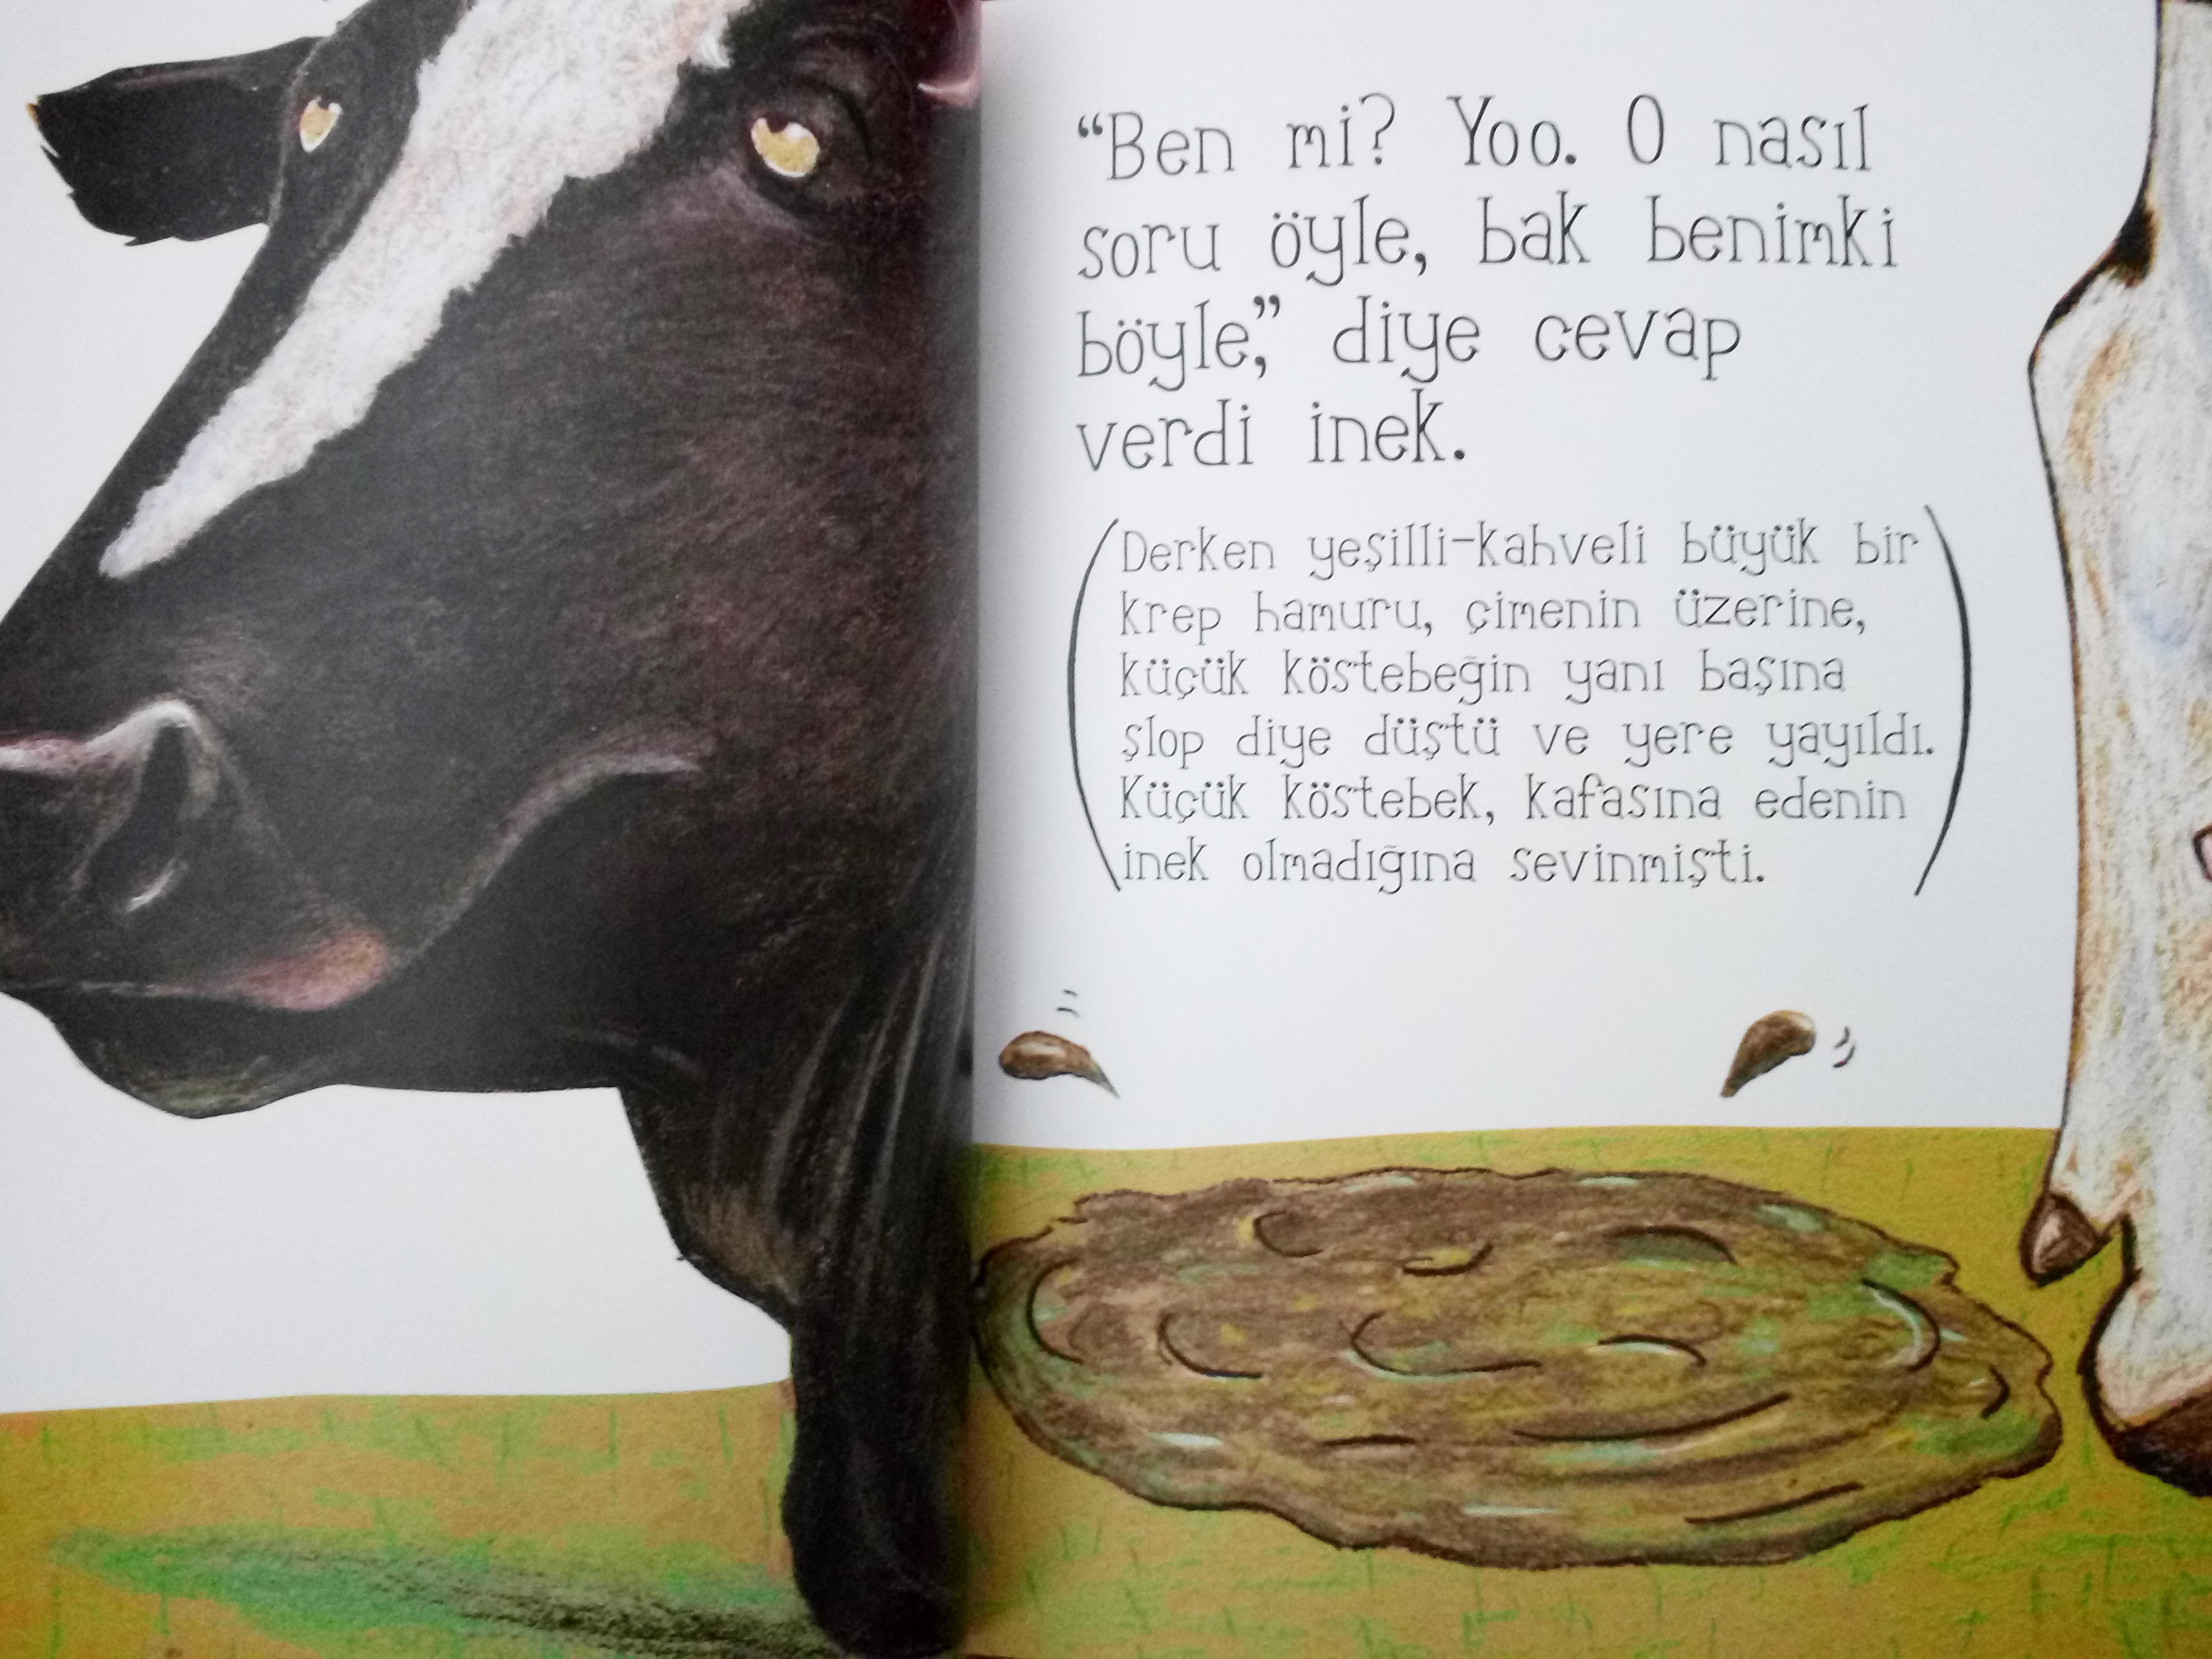 “Ben mi? Yoo. O nasıl
soru öyle, bak benimki
böyle,” diye cevap
verdi inek.
(Derken yeşilli-kahveli büyük bir
krep hamuru, çimenin üzerine,
küçük köstebeğin yanı başına
şlop diye düştü ve yere yayıldı.
Küçük köstebek, kafasına edenin
inek olmadığına sevinmişti.)